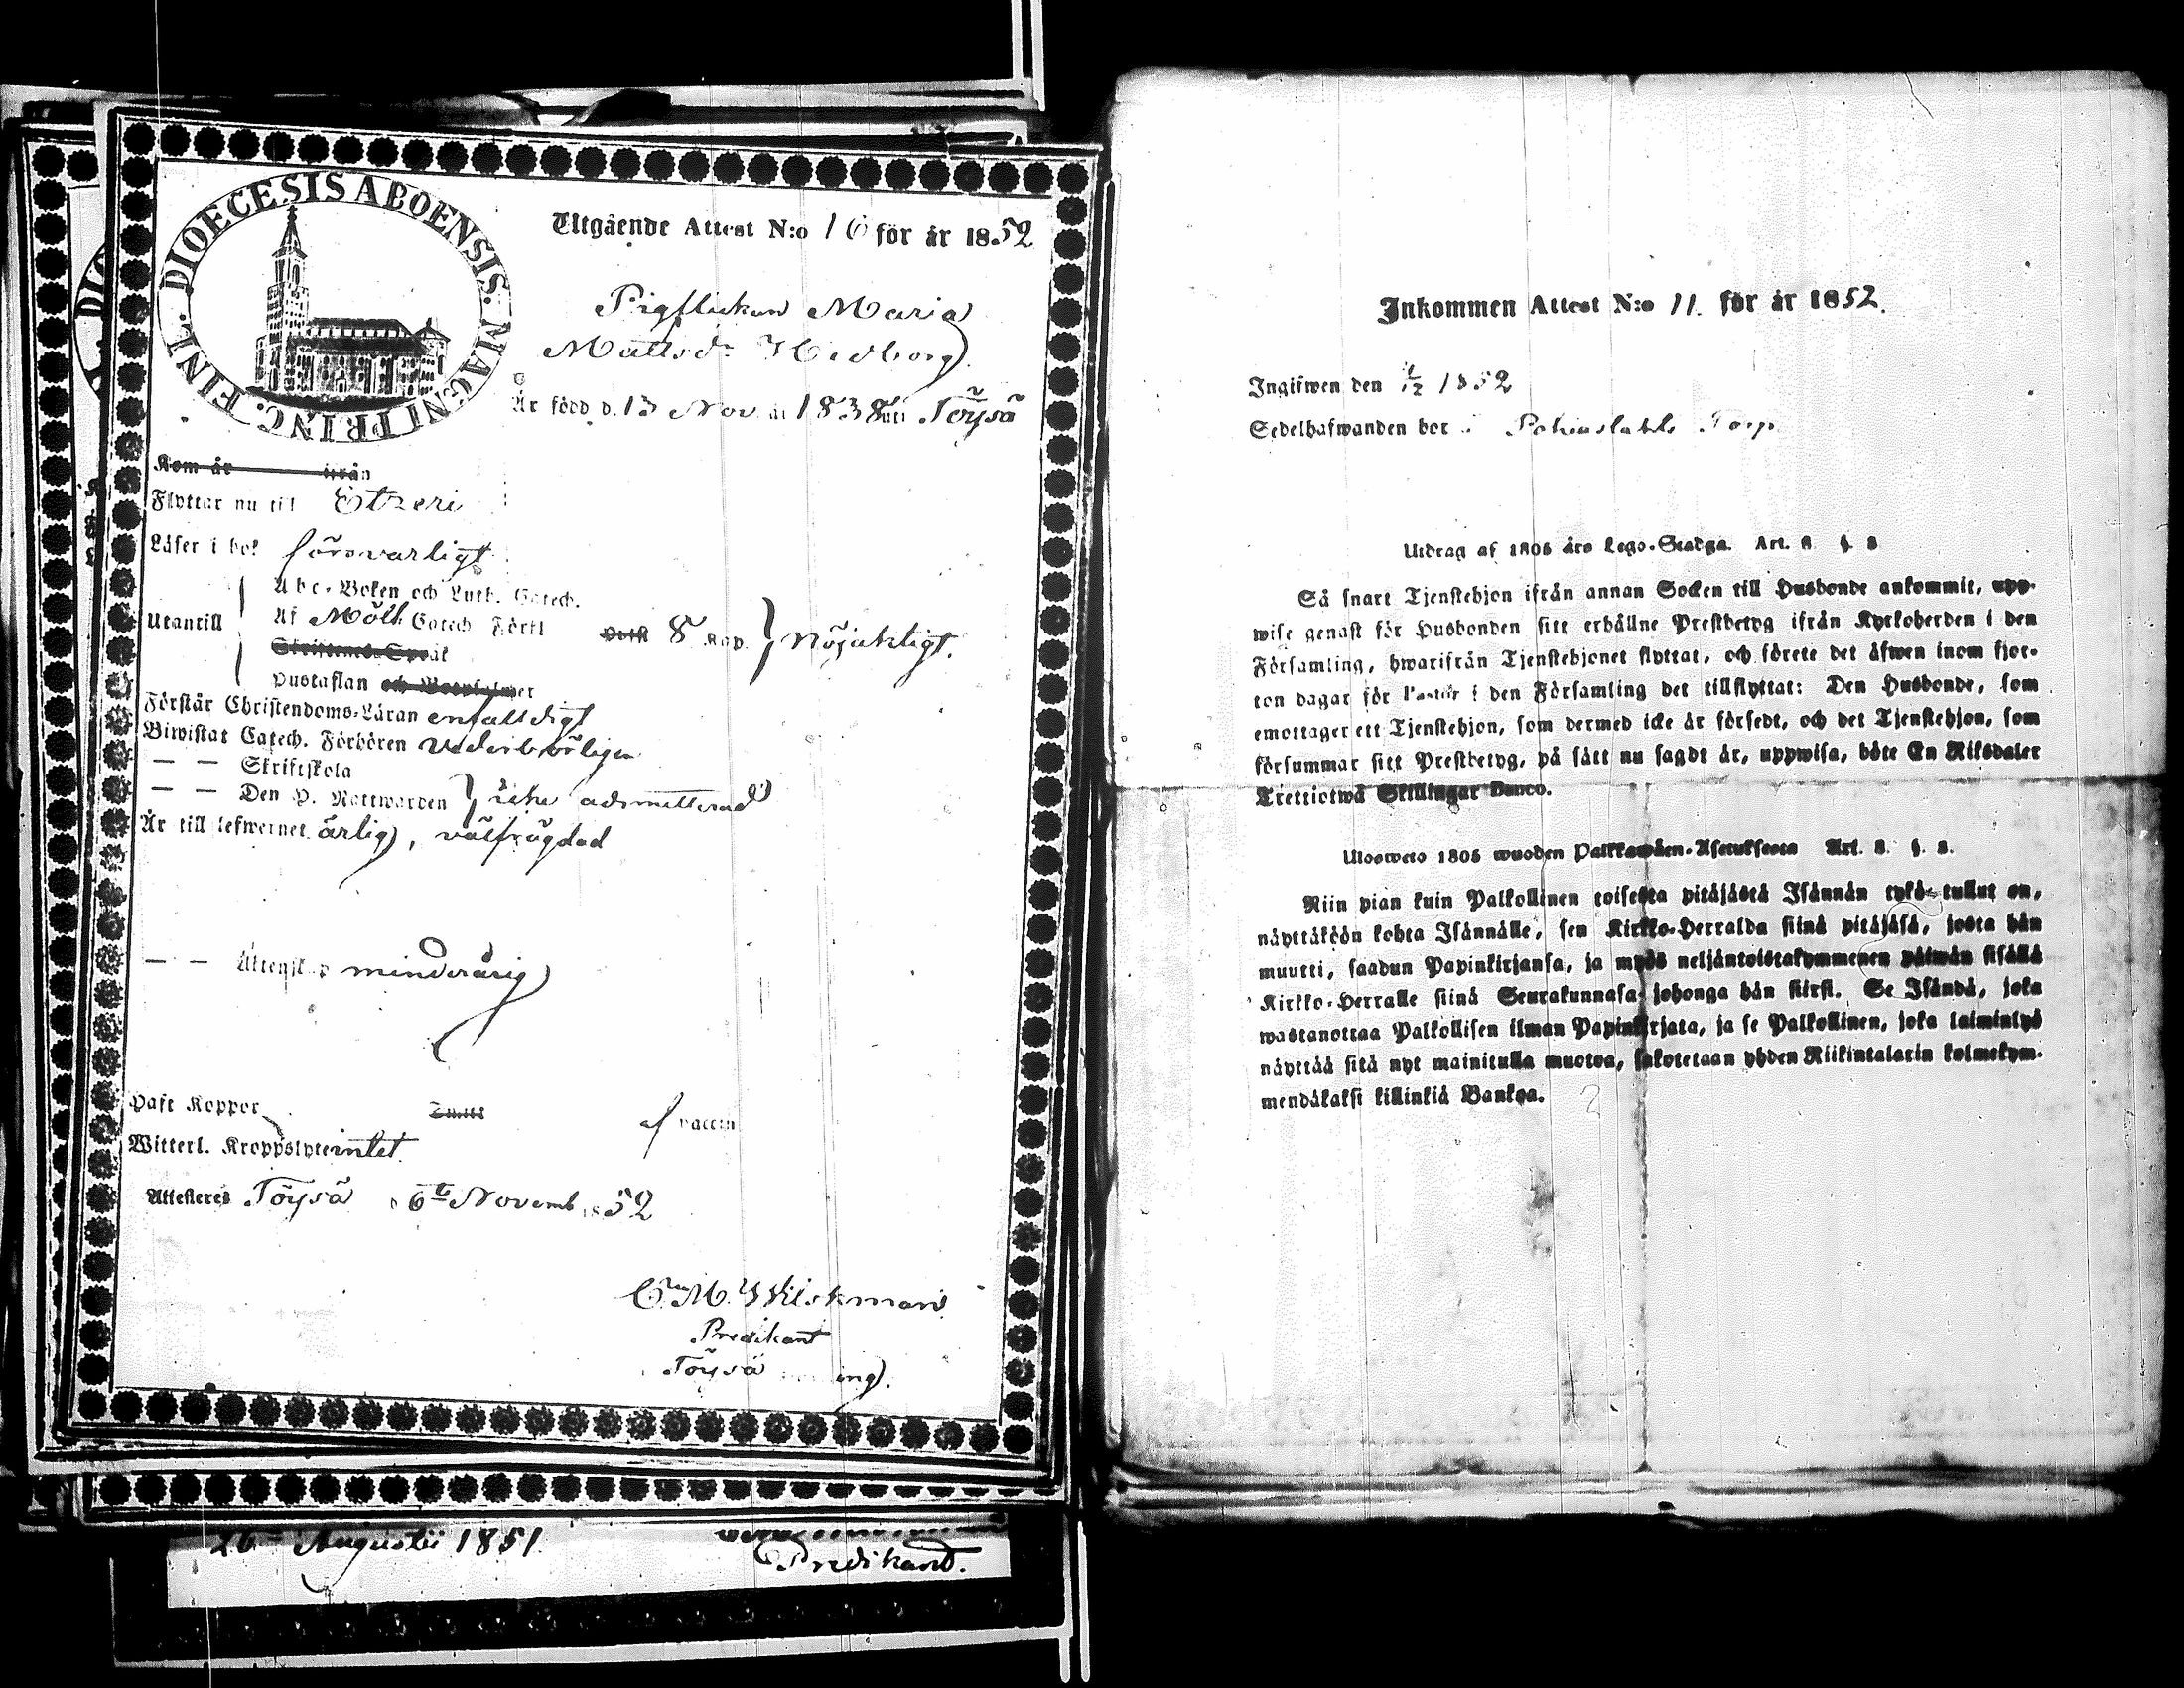 DIOECESIS ABOENSIS. MAGNI PRINC. FINL.
Utgående Attest N:o 16 för år 1852
Pigflickan Maria
Mattsdr Hedborg
Är född d. 13 Nov. år 1838 uti Töysä
Kom år ifrån
Flyttar nu till Etzeri
Läser i bok försvarligt
Abc-Boken och Luth. Catech.
Utantill Af Möll. Catech Förkl 8 Kap. nöjaktligt.
Skriftenes Språk
Hustaflan och
Förstår Christendoms-Läran enfaldigt
Biwistat Catech. Förhören vederbörligen
— — Skriftskola
— — Den H. Nattwarden icke admitterad
Är till lefwernet ärlig, välfrägdad
— — Äktenskap minderårig
Haft Koppor af vaccin
Witterl. Kroppslyte intet
Attesteras Töysä d 6te Novemb. 1852
Predikant
Töysä
26 Augustii 1851
Predikant.
Inkommen Attest N:o 11. för år 1852.
Ingifwen den 1852
Sedelhafwanden bor Torp
Utdrag af 1805 års Lego-Stadga. Art. 8 §. 8
Så snart Tjenstehjon ifrån annan Socken till Husbonde ankommit, upp-
wise genast för Husbonden sitt erhållne Prestbetyg ifrån Kyrkoherden i den
Församling, hwarifrån Tjenstehjonet flyttat, och förete det äfwen inom fjor-
ton dagar för Pastor i den Församling det tillflyttat: Den Husbonde, som
emottager ett Tjenstehjon, som dermed icke är försedt, och det Tjenstehjon, som
försummar sitt Prestbetyg, på sätt nu sagdt är, uppwisa, böte En Riksdaler
Trettiotwå Skillingar Banco.
Ulosweto 1805 wuoden Palkkawäen-Asetuksesta Art. 8. §. 8.
Niin pian kuin Palkollinen toisesta pitäjästä Isännän tykö tullut on,
näyttäköön kohta Isännälle, sen Kirkko-Herralda siinä pitäjäsä, josta hän
muutti, saadun Papinkirjansa, ja myös neljäntoistakymmenen päiwän sisällä
Kirkko-Herralle siinä Seurakunnasa johonga hän siirsi. Se Isändä, joka
wastanottaa Palkollisen ilman Papinkirjata, ja se Palkollinen, joka laiminlyö
näyttää sitä nyt mainitulla muotoa, sakotetaan yhden Riikintalarin kolmekym-
mendäkaksi killinkiä Bankoa.